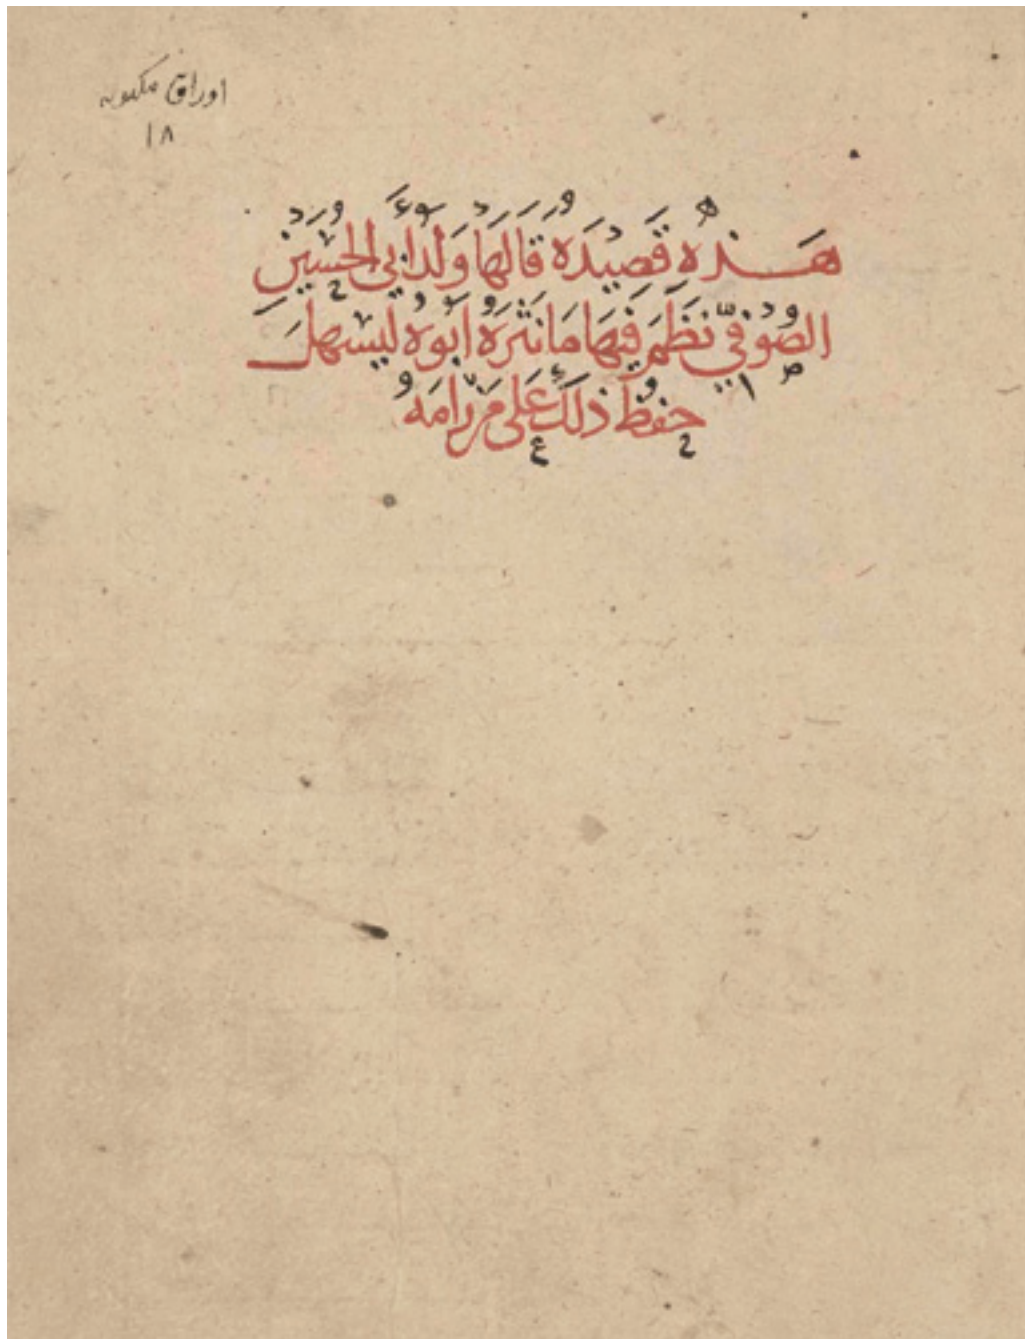 اوراق مكتوبه
١٨
هَذِهِ قَصِيدَةٌ قَالَهَا وَلَدُ أَبِي الحُسَيْنِ
الصُّوْفِيِّ نَظَمَ فِيهَا مَا نَثَرَهُ أَبُوهُ لِيَسْهُلَ
حِفْظُ ذَلِكَ عَلَى مَنْ رَامَهُ